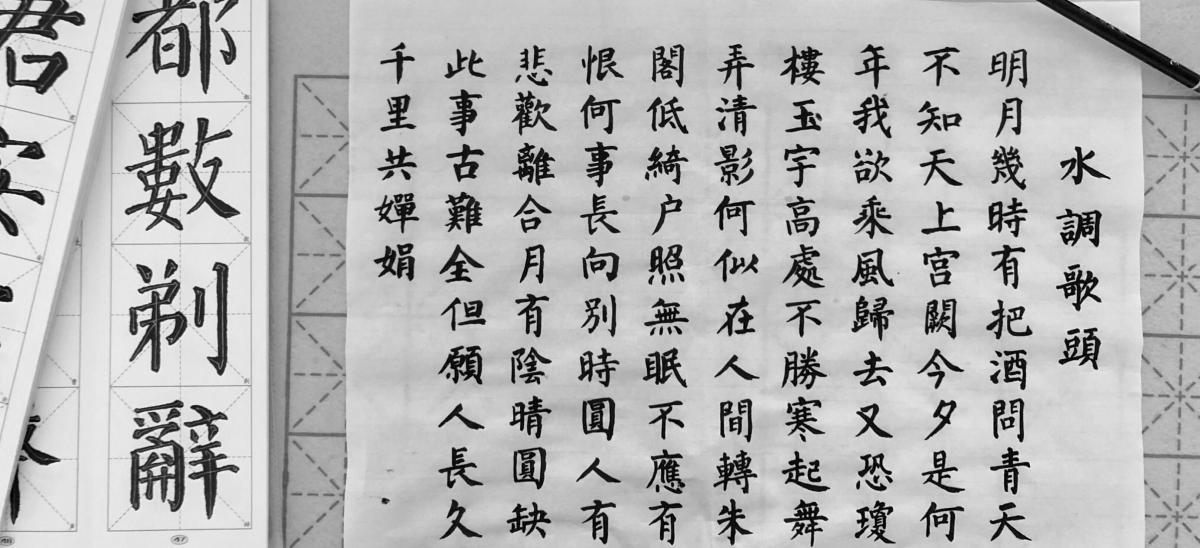 水調歌頭
明月幾時有把酒問青天
不知天上宮闕今夕是何
年我欲乘風歸去又恐瓊
樓玉宇高處不勝寒起舞
弄清影何似在人間轉朱
閣低綺户照無眠不應有
恨何事長向別時圓人有
悲歡離合月有陰晴圓缺
此事古難全但願人長久
千里共嬋娟
都數剃辭
47